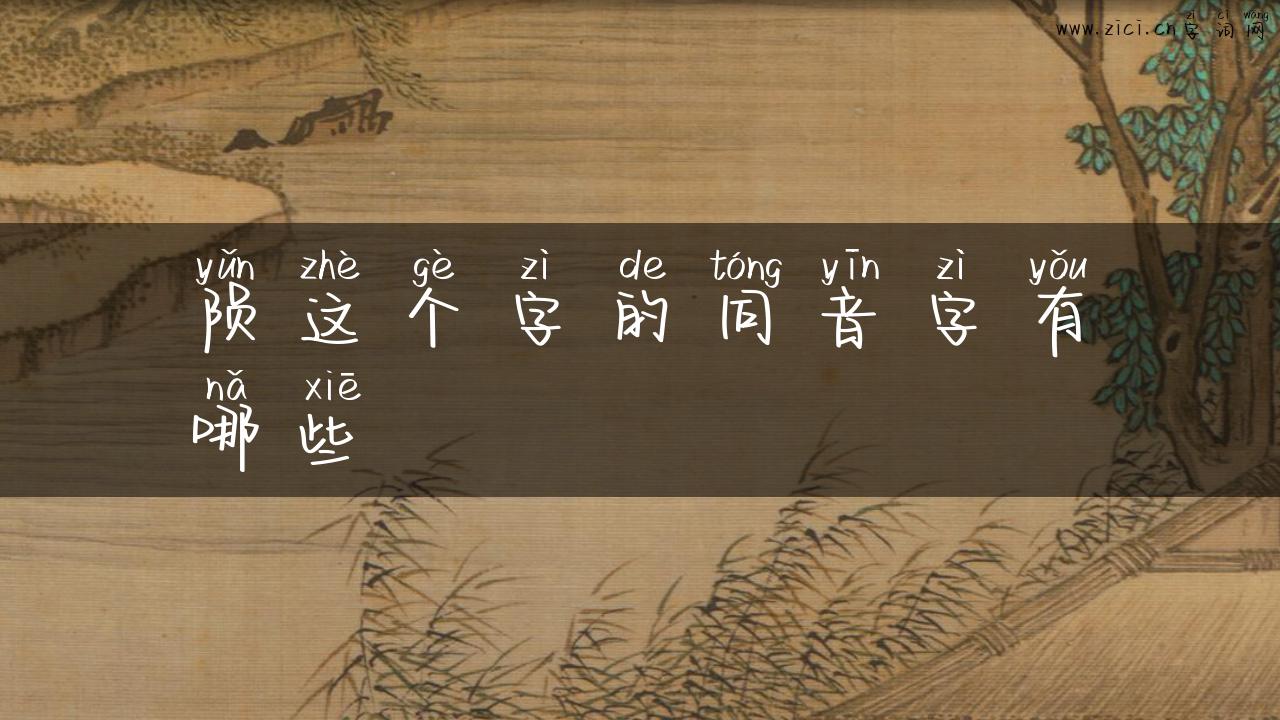 zì cí wǎng
www.zici.cn字词网
yǔn zhè gè zì de tóng yīn zì yǒu
陨这个字的同音字有
nǎ xiē
哪些